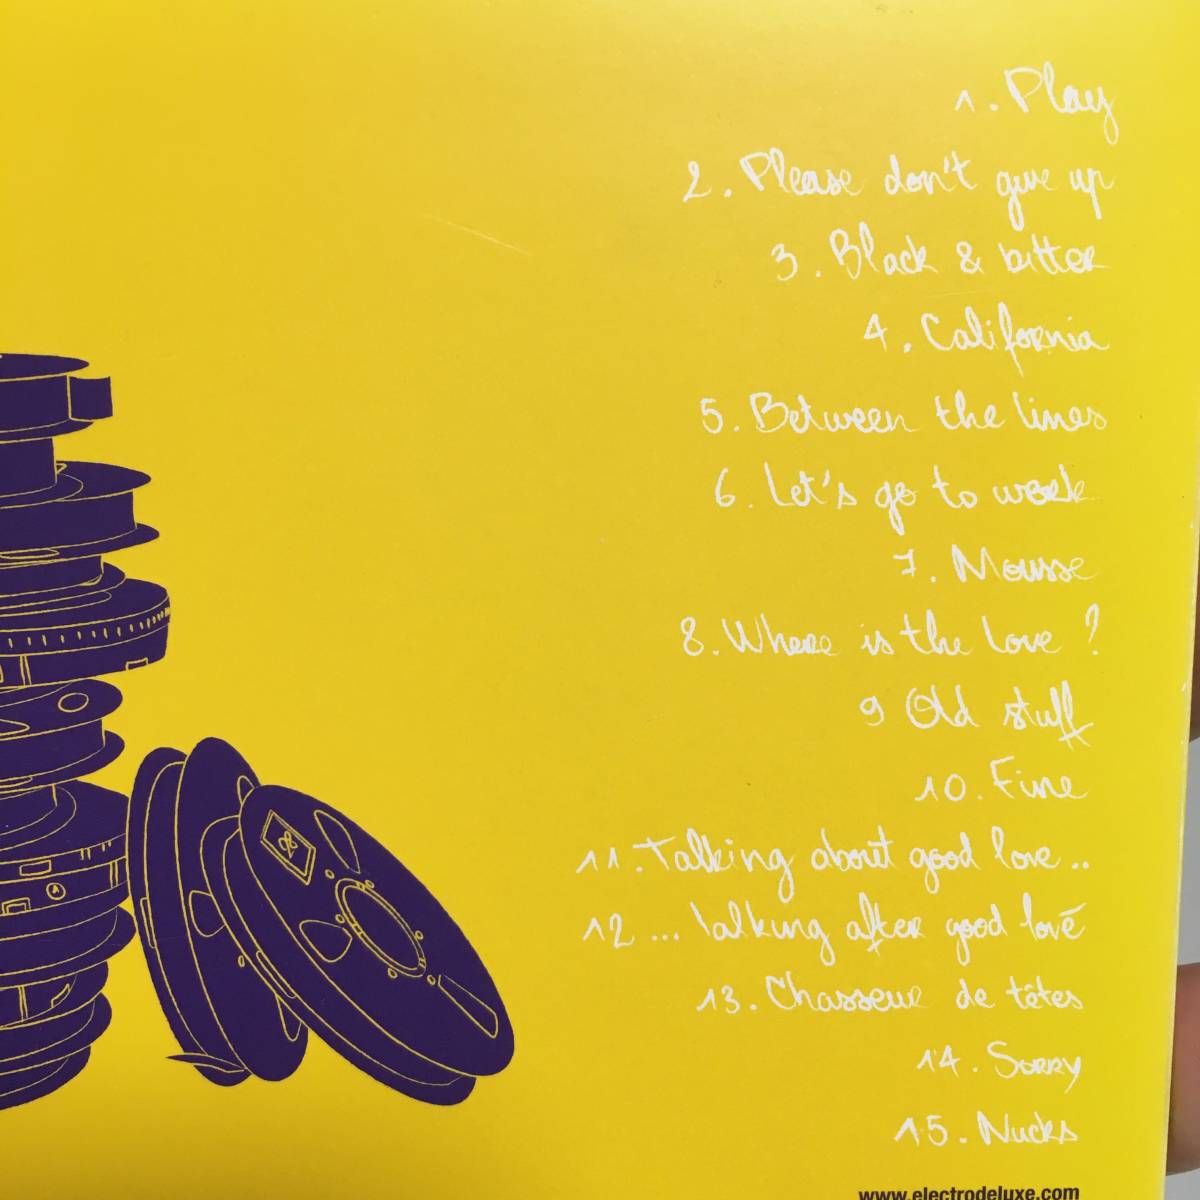 1. Play
2. Please don't give up
3. Black & bitter
4. California
5. Between the lines
6. Let's go to work
7. Mousse
8. Where is the love ?
9 Old stuff
10. Fine
11. Talking about good love..
12 ... Talking after good love
13. Chasseur de têtes
14. Sorry
15. Nucks
www.electrodeluxe.com